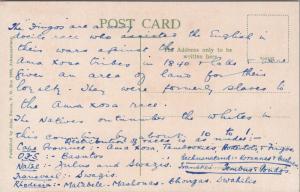 POST CARD
The Fingos are a
docile race who assisted the English in
their wars against the
The Address only to be
written here.
Ama Xosa tribes in 1840 &
given an area of land for their
loyalty. They were formerly slaves
to the Ama Xosa race.
The Natives outnumber the whites in
this country by about 10 to 1.
Distribution of races as under:-
Cape Province:- Ama Xosa Tembookies Hottentots & Fingos
Bechuanaland:-
OFS:- Basutos
Natal:- Zulus and Swazis.
Transvaal:- Swazis.
Rhodesia:- Matabele - Mashonas -